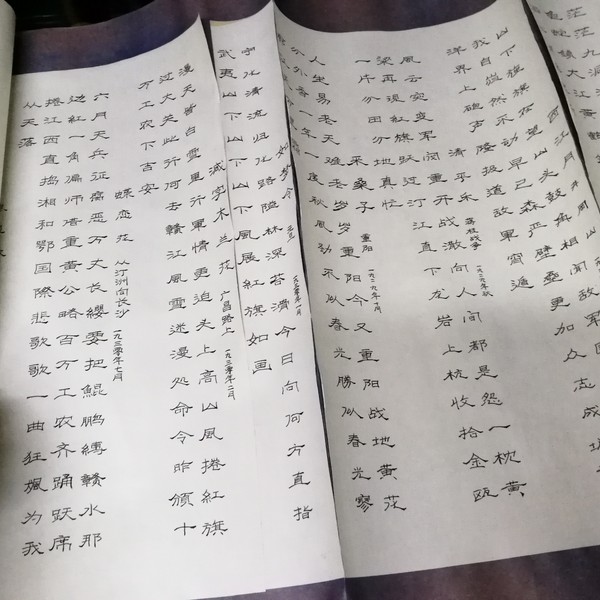 西江月
山下旌旗在望山头鼓角相闻
我自巋然不动早已森严壁壘更加众志成城
洋界上砲声隆报道敌军宵遁
清平乐 蒋桂战争 一九二九年秋
风云突变军阀重开战洒向人间都是怨一枕黄
梁再现红旗跃过汀江直下龙岩上杭收拾金瓯
一片分田分地真忙
采桑子 重阳 一九二九年十月
人生易老天难老岁岁重阳今又重阳战地黄花
分外香一年一度秋风劲不似春光勝似春光寥
如梦令 元旦 一九三零年一月
宁化清流归化路隘林深苔滑今日向何方直指
武夷山下山下風展紅旗如画
減字木兰花 广昌路上 一九三零年二月
漫天皆白雪里行軍情更迫头上高山風捲紅旗
过大关此行何去赣江風雪迷漫処命令昨颁十
万工农下吉安
蝶恋花 从汀洲向长沙 一九三零年七月
六月天兵征腐恶万丈长缨要把鲲鹏缚赣水那
边紅一角偏师借重黄公略百万工农齐踊跃席
捲江西直捣湘和鄂国際悲歌歌一曲狂飆为我
从天落